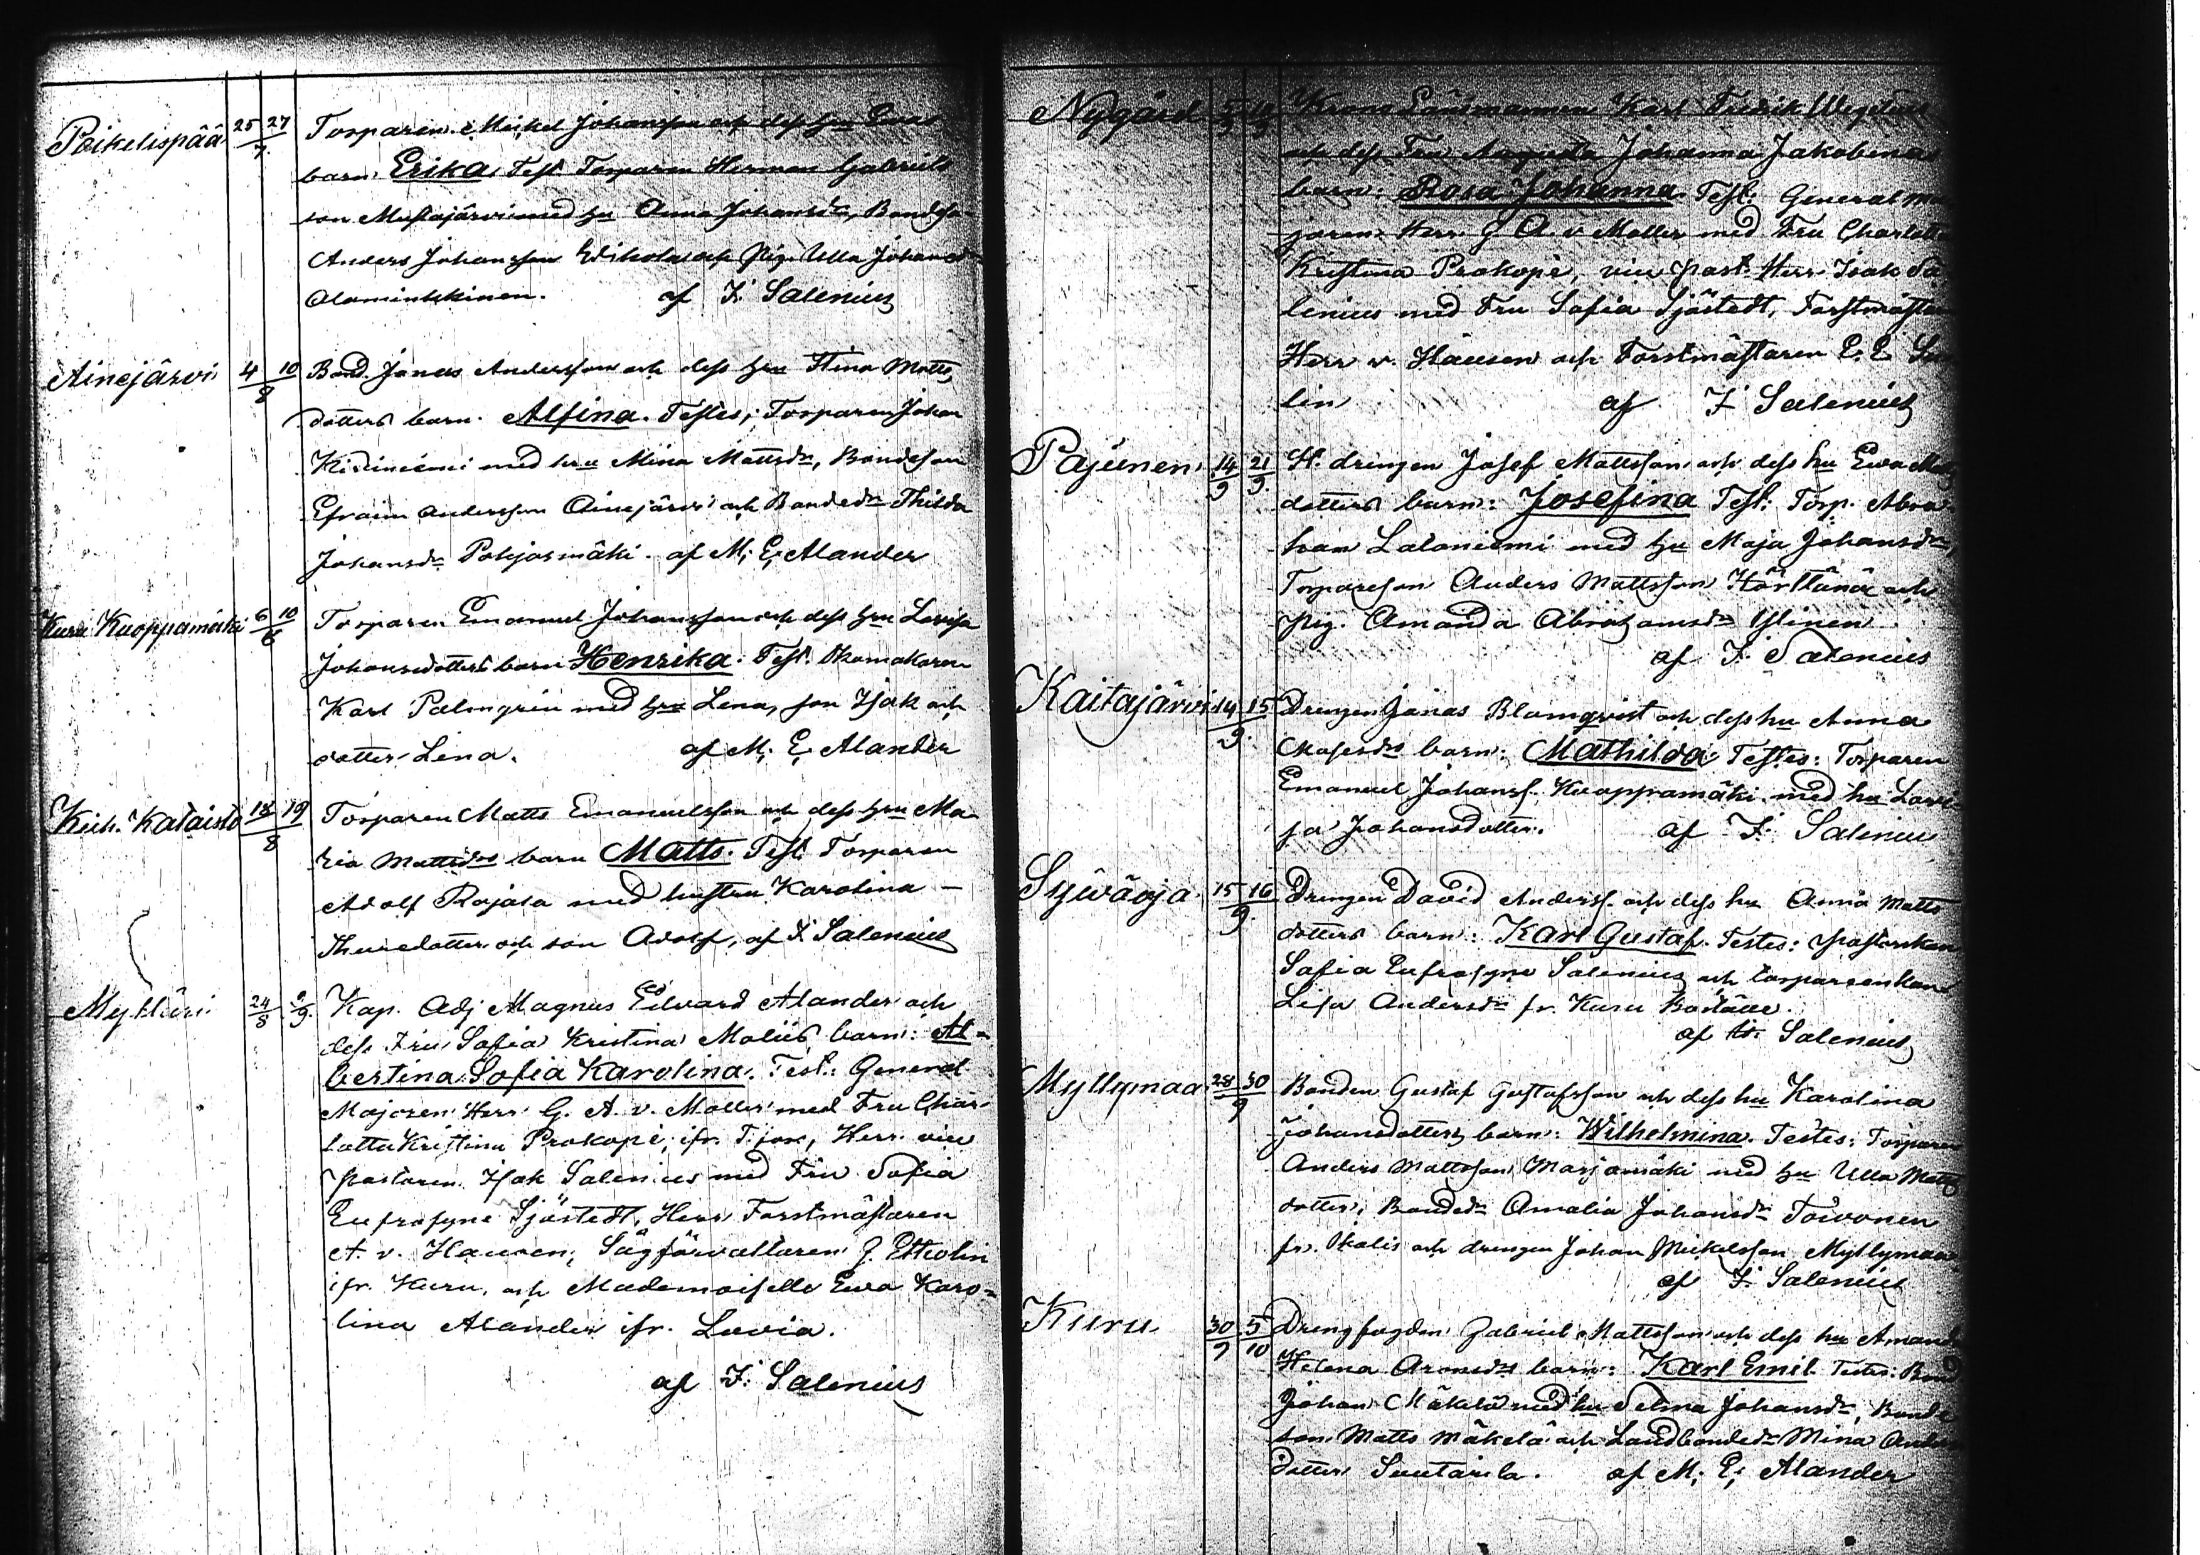 Poikelispää 25 27/7 Torparen Mickel Johansson och dess hu Evas
barn Erika, Test Torparen Herman Gabriels
son Mustajärvi med hu Anna Johansdr, Bondeson
Anders Johansson och Pig. Ulla Johansdr
Alamintkinen. af I. Salenius
Ainejärvi 4 10/8 Bond. Jonas Andersson och dess hu Stina Matts
dotters barn. Alfina. Testes; Torparen Johan
Kidiniemi med hu Mina Mattsdr, Bondeson
Efraim Andersson Ainejärvi och Bondedr Thilda
Johansdr Pohjosmäki. af M. E. Alander
Kuru Kuoppamäki 6 10/8 Torparen Emanuel Johansson och dess hu Lovisa
Johansdotters barn Henrika. Test. Skomakaren
Karl Palmgrén med hu Lena, son Isak och
dotter Lina. af M. E. Alander
Keih. Kataisto 18 19/8 Torparen Matts Emanuelsson och dess hu Ma-
ria Mattsdrs barn Matts. Test. Torparen
Adolf Rajala med hustru Karolina –
Thuredotter och son Adolf, af I. Salenius
24/8 2/9 Kap. Adj Magnus Edvard Alander och
dess Fru Sofia Kristina Moliis barn: Al-
bertina Sofia Karolina. Test.: General
Majoren Herr G. A. v. Moller med Fru Char-
lotta Kristina Prokopé, Herr vice
pastoren Isak Salenius med Fru Sofia
Eufrosyne Sjöstedt, Herr Forstmästaren
A. v. Hausen, Sågförvaltaren G. Etholin
ifr. Kuru, och Mademoiselle Ewa Karo-
lina Alander ifr. Lovia.
af I. Salenius
Nygård Krono Länsmannen Karl Fredrik
och dess Fru Augusta Johanna Jakobinas
barn: Rosa Johanna. Test: General ma
joren Herr G A v Moller med Fru Charlotta
Kristina Prokopé, vice past. Herr Isak Sa
lenius med Fru Sofia Sjöstedt, Forstmästa
Herr v. Hausen och Forstmästaren E. E.
lin af I Salenius
Pajunen 14/9 21/9 St. drengen Josef Mattsson och dess hu Ewa
dotters barn: Josefina Test: Torp. Abra-
ham Lataniemi med hu Maja Johansdr,
Torpareson Anders Mattsson och
Pig. Amanda Abrahamsdr Ylinen
af I. Salenius
Kaitajärvi 14 15/9 Drengen Jonas Blomqvist och dess hu Anna
barn: Mathilda, Testes: Torparen
Emanuel Johanss. Kuoppamäki med hu Lovi-
sa Johansdotter. af I. Salenius
Sywäoja 15 16/9 Drengen David Anderss. och dess hu Anna Matts
dotters barn: Karl Gustaf. Testes: Pastorskan
Sofia Eufrosyne Salenius och torpareenkan
Lisa Andersdr fr. Kuru
af I. Salenius
Myllymaa 28 30/9 Bonden Gustaf Gustafsson och dess hu Karolina
Johansdotters barn: Wilhelmina. Testes: Torparen
Anders Mattsson Marjamäki med hu Ulla Matts
dotter, Bondedr Amalia Johansdr Toivonen
fr. och drengen Johan Mickelsson Myllymaa
af I. Salenius
Kuru 30/9 5/10 Drengfogden Gabriel Mattsson och dess hu Amanda
Helena Aronsdrs barn: Karl Emil. Testes: Bond
Johan Mäkelä med hu Selma Johansdr, Bonde
son Matts Mäkelä och Landbondedr Mina
dotter Suutarila. af M. E. Alander